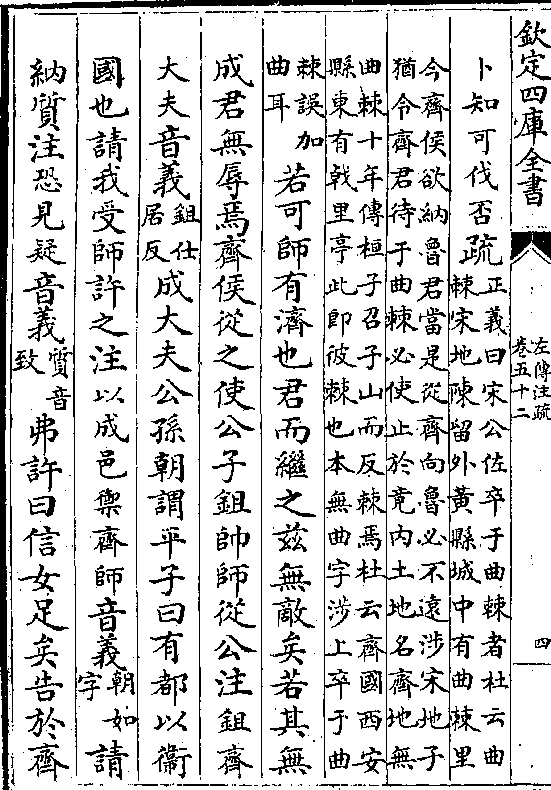 欽定四庫全書
左傳注疏
卷五十二
四
卜知可伐否疏
正義曰宋公佐卒于曲棘者杜云曲
棘宋地陳留外黃縣城中有曲棘里
今齊侯欲納魯君當是從齊向魯必不遠涉宋地子
猶令齊君待于曲棘必使止於竟內土地名齊地無
曲棘十年傳桓子召子山而反棘焉杜云齊國西安
縣東有戟里亭此即彼棘也本無曲字涉上卒于曲
棘誤加
曲耳
若可師有濟也君而繼之茲無敵矣若其無
成君無辱焉齊侯從之使公子鉏帥師從公注鉏齊
大夫音義
鉏仕
居反
成大夫公孫朝謂平子曰有都以衞
國也請我受師許之注以成邑禦齊師音義
朝如
字
請
納質注恐見疑音義
質音
致
弗許曰信女足矣告於齊